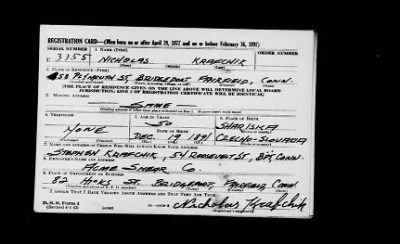 REGISTRATION CARD—(Men born on or after April 28, 1877 and on or before February 16, 1897)
SERIAL NUMBER 1. NAME (Print)
U 3155 NICHOLAS KRAFCHIK
(First) (Middle) (Last)
2. PLACE OF RESIDENCE (Print)
58 PLYMOUTH ST. BRIDGEPORT, FAIRFIELD, CONN.
(Number and street) (Town, township, village, or city) (County) (State)
[THE PLACE OF RESIDENCE GIVEN ON THE LINE ABOVE WILL DETERMINE LOCAL BOARD
JURISDICTION; LINE 2 OF REGISTRATION CERTIFICATE WILL BE IDENTICAL]
3. MAILING ADDRESS
SAME
4. TELEPHONE 5. AGE IN YEARS 6. PLACE OF BIRTH
50
NONE DATE OF BIRTH
DEC. 19 1891 CZECHO-SLOVAKIA
7. NAME AND ADDRESS OF PERSON WHO WILL ALWAYS KNOW YOUR ADDRESS
STEPHEN KRAFCHIK, 54 ROOSEVELT ST., BPT., CONN.
8. EMPLOYER'S NAME AND ADDRESS
ACME SHEAR CO.
9. PLACE OF EMPLOYMENT OR BUSINESS
ST. BRIDGEPORT, FAIRFIELD, CONN.
I AFFIRM THAT I HAVE VERIFIED ABOVE ANSWERS AND THAT THEY ARE TRUE.
D. S. S. Form 1
Nicholas Krafchik